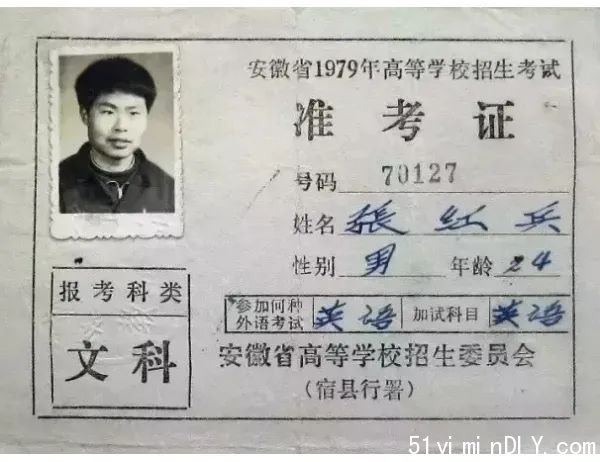 安徽省1979年高等学校招生考试
准考证
号码 70127
姓名 張红兵
性别 男 年龄 24
报考科类
文科
参加何种外语考试 英语 加试科目 英语
安徽省高等学校招生委员会
(宿县行署)
51yiminDIY.com